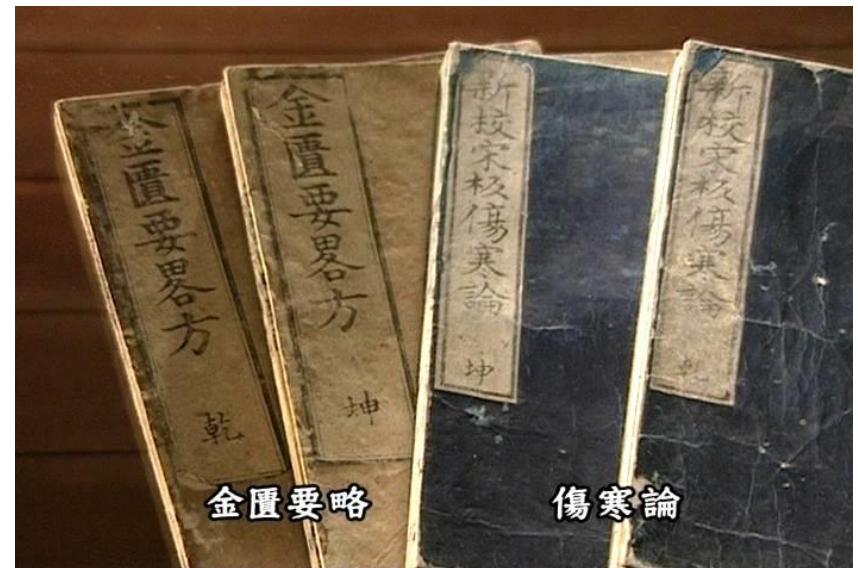 金匱要畧方
乾
金匱要畧方
坤
新校宋板傷寒論
坤
新校宋板傷寒論
乾
金匱要略
傷寒論